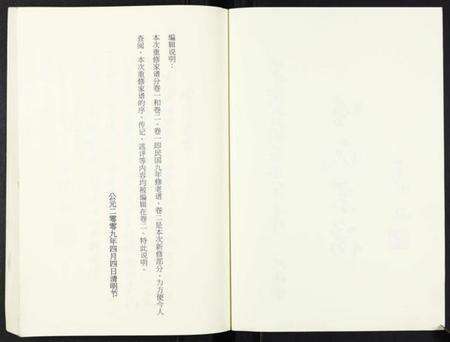 编辑说明：
本次重修家谱分卷一和卷二，卷一即民国九年修老谱，卷二是本次新修部分，为方便今人
查阅，本次重修家谱的序、传记、选评等内容均被编辑在卷二，特此说明。
公元二零零九年四月四日清明节